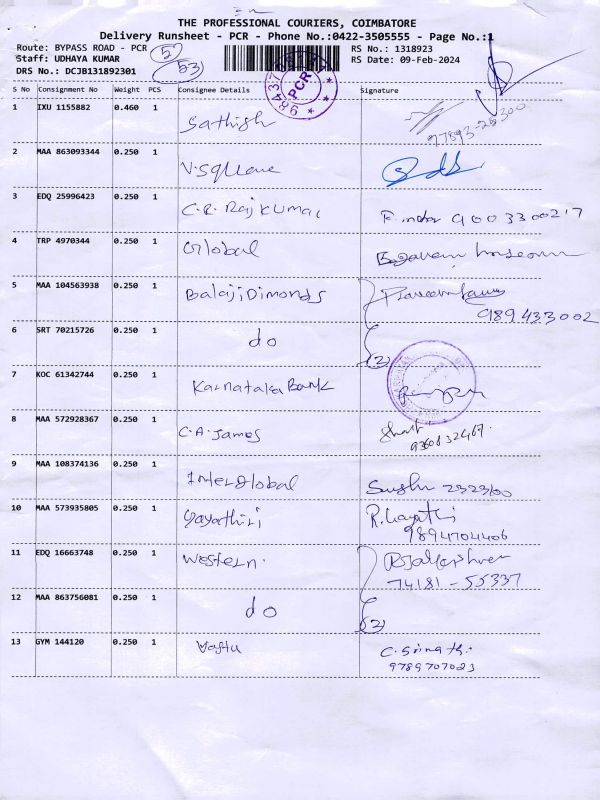 THE PROFESSIONAL COURIERS, COIMBATORE
Delivery Runsheet - PCR - Phone No.:0422-3505555 - Page No.:1
Route: BYPASS ROAD - PCR
52
RS No.: 1318923
Staff: UDHAYA KUMAR
RS Date: 09-Feb-2024
DRS No.: DCJB131892301
53
PCR
S No Consignment No Weight PCS Consignee Details Signature
1 IXU 1155882 0.460 1 Sathish
2 MAA 863093344 0.250 1 V.square
3 EDQ 25996423 0.250 1 C.R. Rajkumar 9003300217
4 TRP 4970344 0.250 1 Global
5 MAA 104563938 0.250 1 Balaji Dimonds
989433002
6 SRT 70215726 0.250 1 do (2)
7 KOC 61342744 0.250 1 Karnataka Bank
8 MAA 572928367 0.250 1 C.A. James
9 MAA 108374136 0.250 1 Inter global
10 MAA 573935805 0.250 1 Gayathiri R.Gayathi
9894704406
11 EDQ 16663748 0.250 1 Western.
74181-55337
12 MAA 863756081 0.250 1 do (2)
13 GYM 144120 0.250 1 Vastu C.Srinath.
9789707023